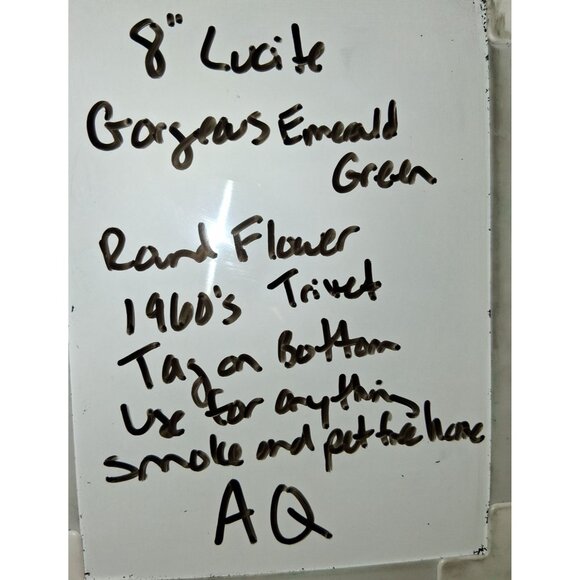 8" Lucite
Gorgeous Emerald
Green
Round Flower
1960's Trivet
Tag on Bottom
Use for anything
smoke and pet free home
AQ